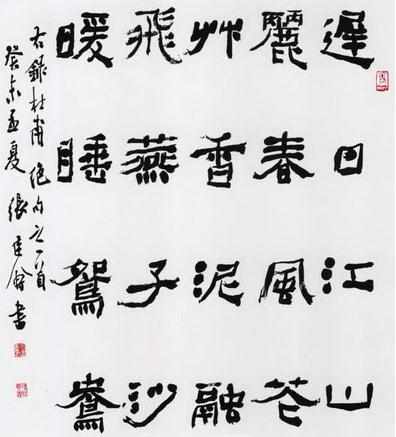 遲日江山
麗春風花
艸香泥融
飛燕子沙
暖睡鴛鴦
右録杜甫绝句之一首
癸未孟夏 張 書